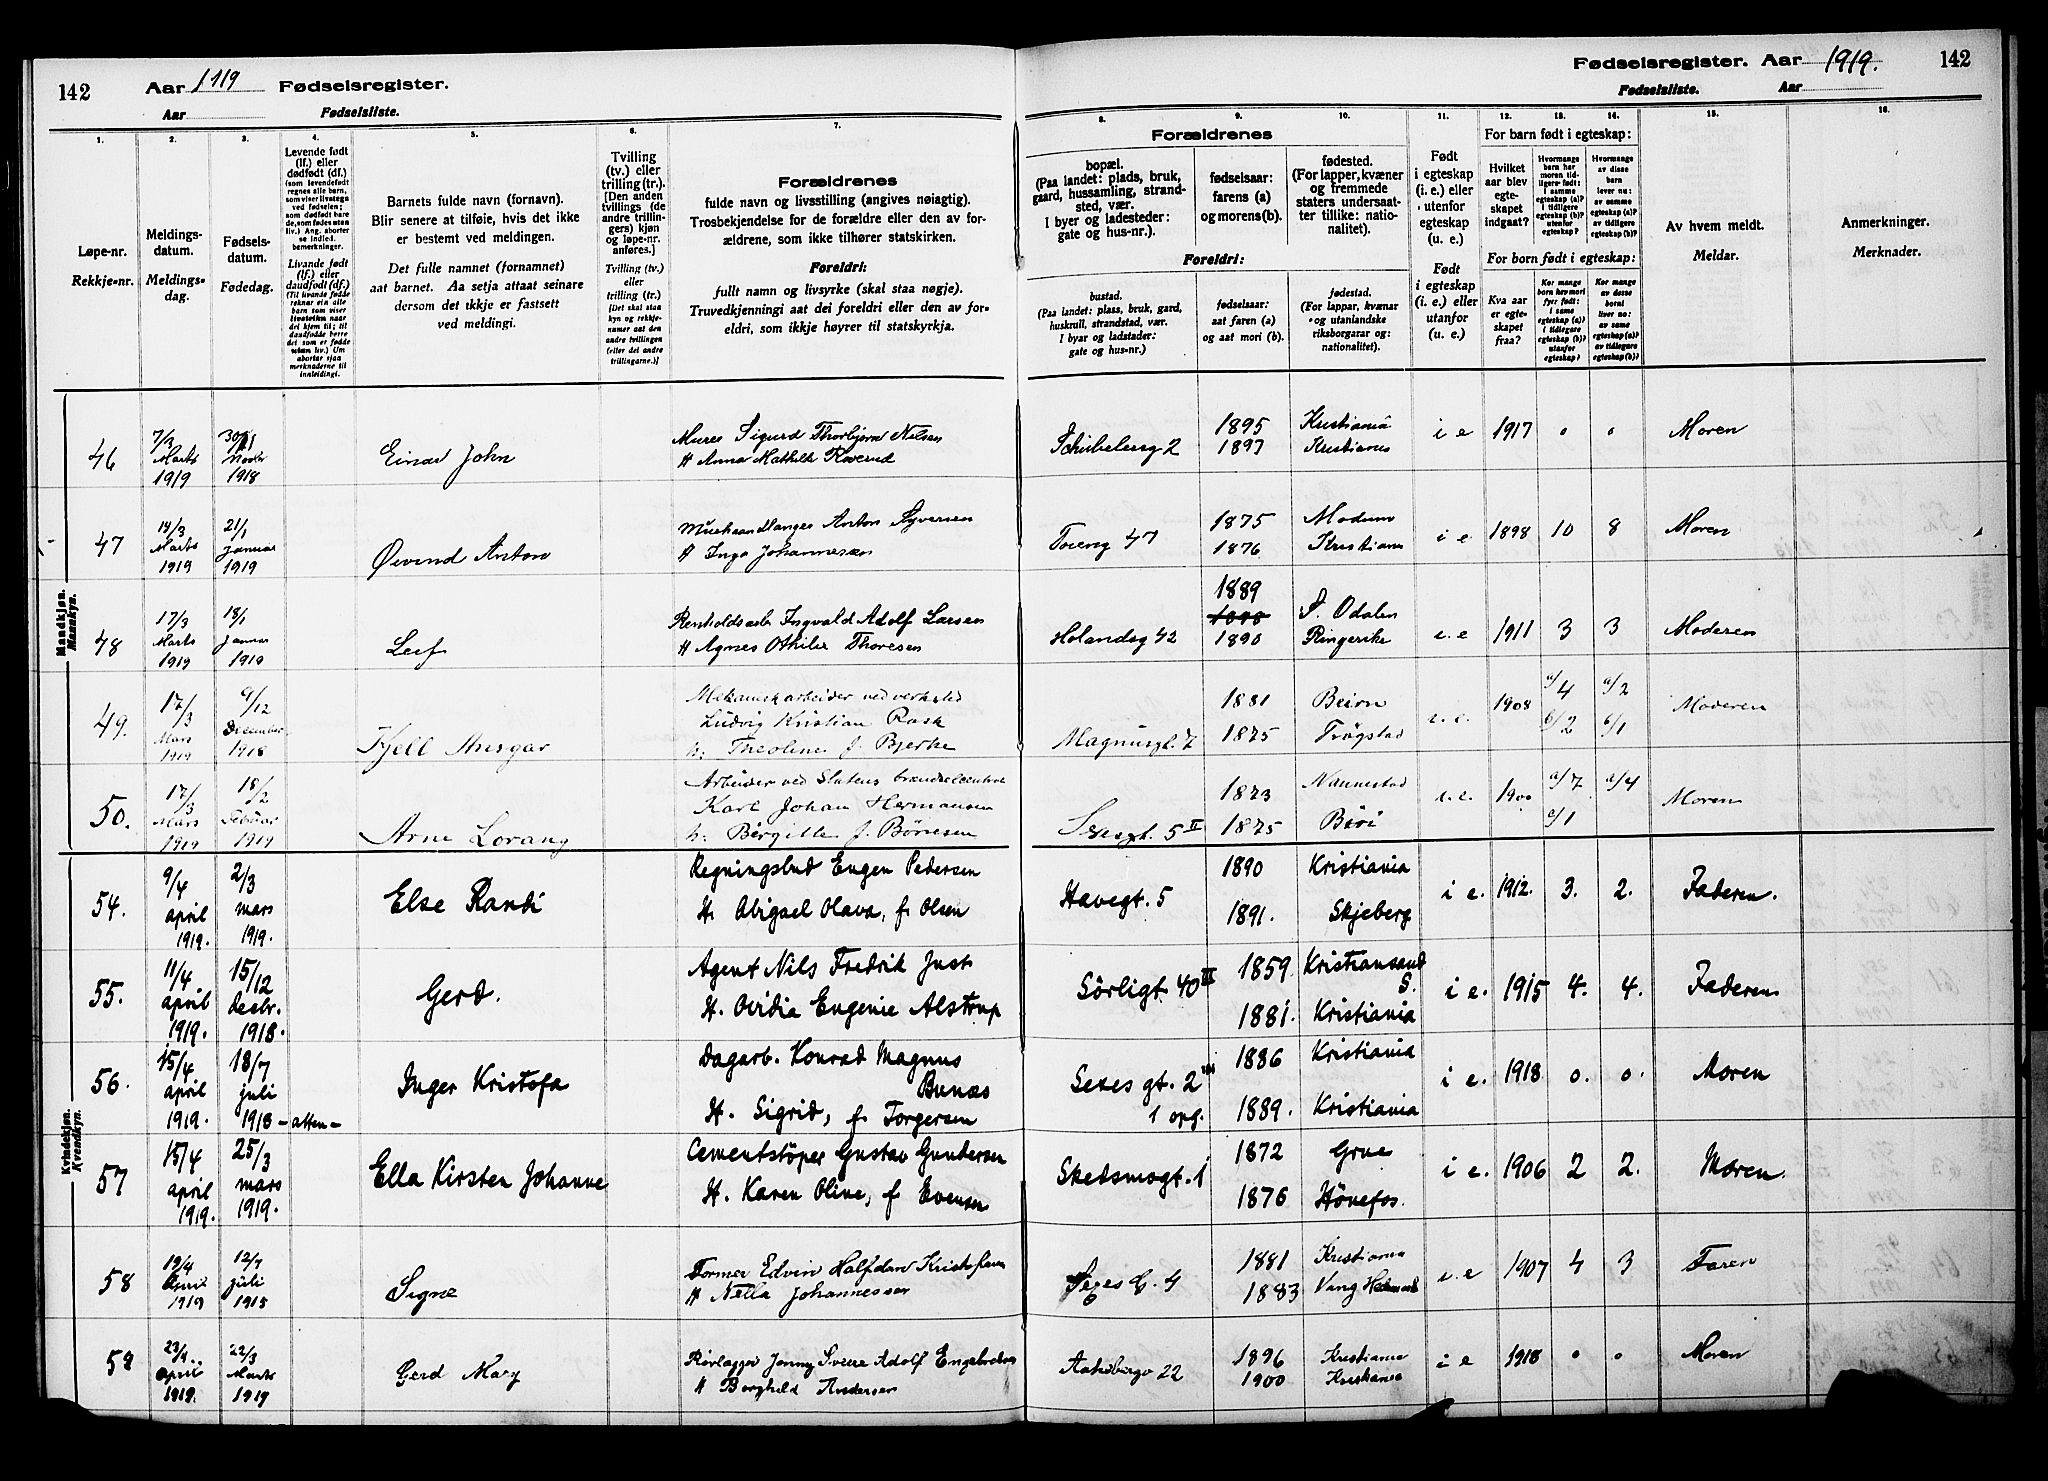 142 Aar 1919 Fødselsregister.
Aar Fødselsliste.
Fødselsregister. Aar 1919. 142
Fødselsliste. Aar
1. 2. 3. 4. 5. 6. 7.
8. 9. 10. 11. 12. 13. 14. 15. 16.
Løpe-nr.
Rekkje-nr.
Meldings-
datum.
Meldings-
dag.
Fødsels-
datum.
Fødedag.
Levende født
(lf.) eller
dødfødt (df.)
Livande født
(lf.) eller
daudfødt (df.)
Barnets fulde navn (fornavn).
Blir senere at tilføie, hvis det ikke
er bestemt ved meldingen.
Det fulle namnet (fornamnet)
aat barnet. Aa setja attaat seinare
dersom det ikkje er fastsett
ved meldingi.
Tvilling
(tv.) eller
trilling (tr.)
[Den anden
tvillings (de
andre trillin-
gers) kjøn
og løpe-nr.
anføres.]
Tvilling (tv.)
eller
trilling (tr.)
Forældrenes
fulde navn og livsstilling (angives nøiagtig).
Trosbekjendelse for de forældre eller den av for-
ældrene, som ikke tilhører statskirken.
Foreldri:
fullt namn og livsyrke (skal staa nøgje).
Truvedkjenningi aat dei foreldri eller den av for-
eldri, som ikkje høyrer til statskyrkja.
Forældrenes
bopæl.
(Paa landet: plads, bruk,
gaard, hussamling, strand-
sted, vær.
I byer og ladesteder:
gate og hus-nr.).
fødselsaar:
farens (a)
og morens (b).
fødested.
(For lapper, kvæner
og fremmede
staters undersaat-
ter tillike: natio-
nalitet).
Foreldri:
bustad.
(Paa landet: plass, bruk, gard,
huskrull, strandstad, vær.
I byar og ladstader:
gate og hus-nr.)
fødselsaar:
aat faren (a)
og aat mori (b).
fødestad.
(For lappar, kvænar
og utanlandske
riksborgarar og:
nationalitet).
Født
i egteskap
(i. e.) eller
utenfor
egteskap
(u. e.)
Født
i egteskap
(i. e.) eller
utanfor
(u. e.)
For barn født i egteskap:
Hvilket
aar blev
egte-
skapet
indgaat?
For born født i egteskap:
Kva aar
er egte-
skapet
fraa?
Av hvem meldt.
Meldar.
Anmerkninger.
Merknader.
Mandkjøn.
Mankyn.
46 7/3 Marts 1919 30/11 1918 Einar John
Sigurd Thorbjørn Nilsen
H Anna Mathilde
Schübelersg 2 1895 1897 Kristiania Kristiania i e 1917 0 0 Moren
47 14/3 Marts 1919 21/1 Januar 1919 Øivind Anton
Murhaandlanger Anton Syversen
H Inga Johannesen
Tøieng 47 1875 1876 Modum Kristiania i e 1898 10 8 Moren
48 17/3 Marts 1919 18/1 Januar 1919 Leif
Renholdsarb Ingvald Adolf Larsen
H Agnes Othilie Thoresen
Hølandsg 42 1889 1890 S. Odalen Ringerike i. e 1911 3 3 Moderen
49. 17/3 Mars 1919 9/12 December 1918 Kjell Ansgar
Mekanisk arbeider ved verksted
Ludvig Kristian Rask
h. Theoline f. Bjerke
Magnusgt. 7 1881 1875 Beiern Trøgstad i. e. 1908 a/4 b/2 a/2 b/1 Moderen
50. 17/3 Mars 1919 18/2 Februar 1919 Arne Lorang
Arbeider ved Statens brændselcentral
Karl Johan Hermansen
h. Birgitte f. Børresen
Sexesgt. 5 II 1873 1875 Nannestad Biri i. e. 1900 a/7 c/1 a/4 Moren
Kvindekjøn.
Kvendkyn.
54. 9/4 april 1919. 2/3 mars 1919. Else Randi
Regningsbud Eugen Pedersen
H. Abigael Olava, f. Olsen
Havegt. 5 1890 1891. Kristiania Skjeberg i e. 1912. 3. 2. Faderen.
55. 11/4 april 1919. 15/12 desbr. 1918. Gerd.
Agent Nils Fredrik Just
H. Ovidia Eugenie Alstrup
Sörligt. 40 III 1859. 1881. Kristiansand S. Kristiania i e. 1915 4. 4. Faderen
56. 15/4 april 1919. 18/7 juli 1918 - atten - Inger Kristofa
Dagarb. Konrad Magnus
Bunæs
H. Sigrid, f. Torgersen
Sexes gt. 2
1 opg. 1886 1889. Kristiania Kristiania i e. 1918 0. 0. Moren
57 15/4 april 1919. 25/3 mars 1919. Ella Kirsten Johanne
Cementstöper Gustav Gundersen
H. Karen Oline, f Evensen
Skedsmogt. 1 1872 1876 Grue Hönefos. i e. 1906 2 2. Moren.
58 19/4 April 1919 12/7 juli 1915 Signe
Former Edvin Halfdan Kristofersen
H Nella Johannessen
Sexes G. 4 1881 1883 Kristiania Vang Hedmark i. e 1907 4 3 Faren
59 23/4 april 1919. 22/3 Marts 1919 Gerd Mary
Rørlægger Jonny Sverre Adolf Engebretsen
H Borghild Andersen
Aakebergv 22 1896 1900 Kristiania Kristiania i e 1918 0 0 Moren